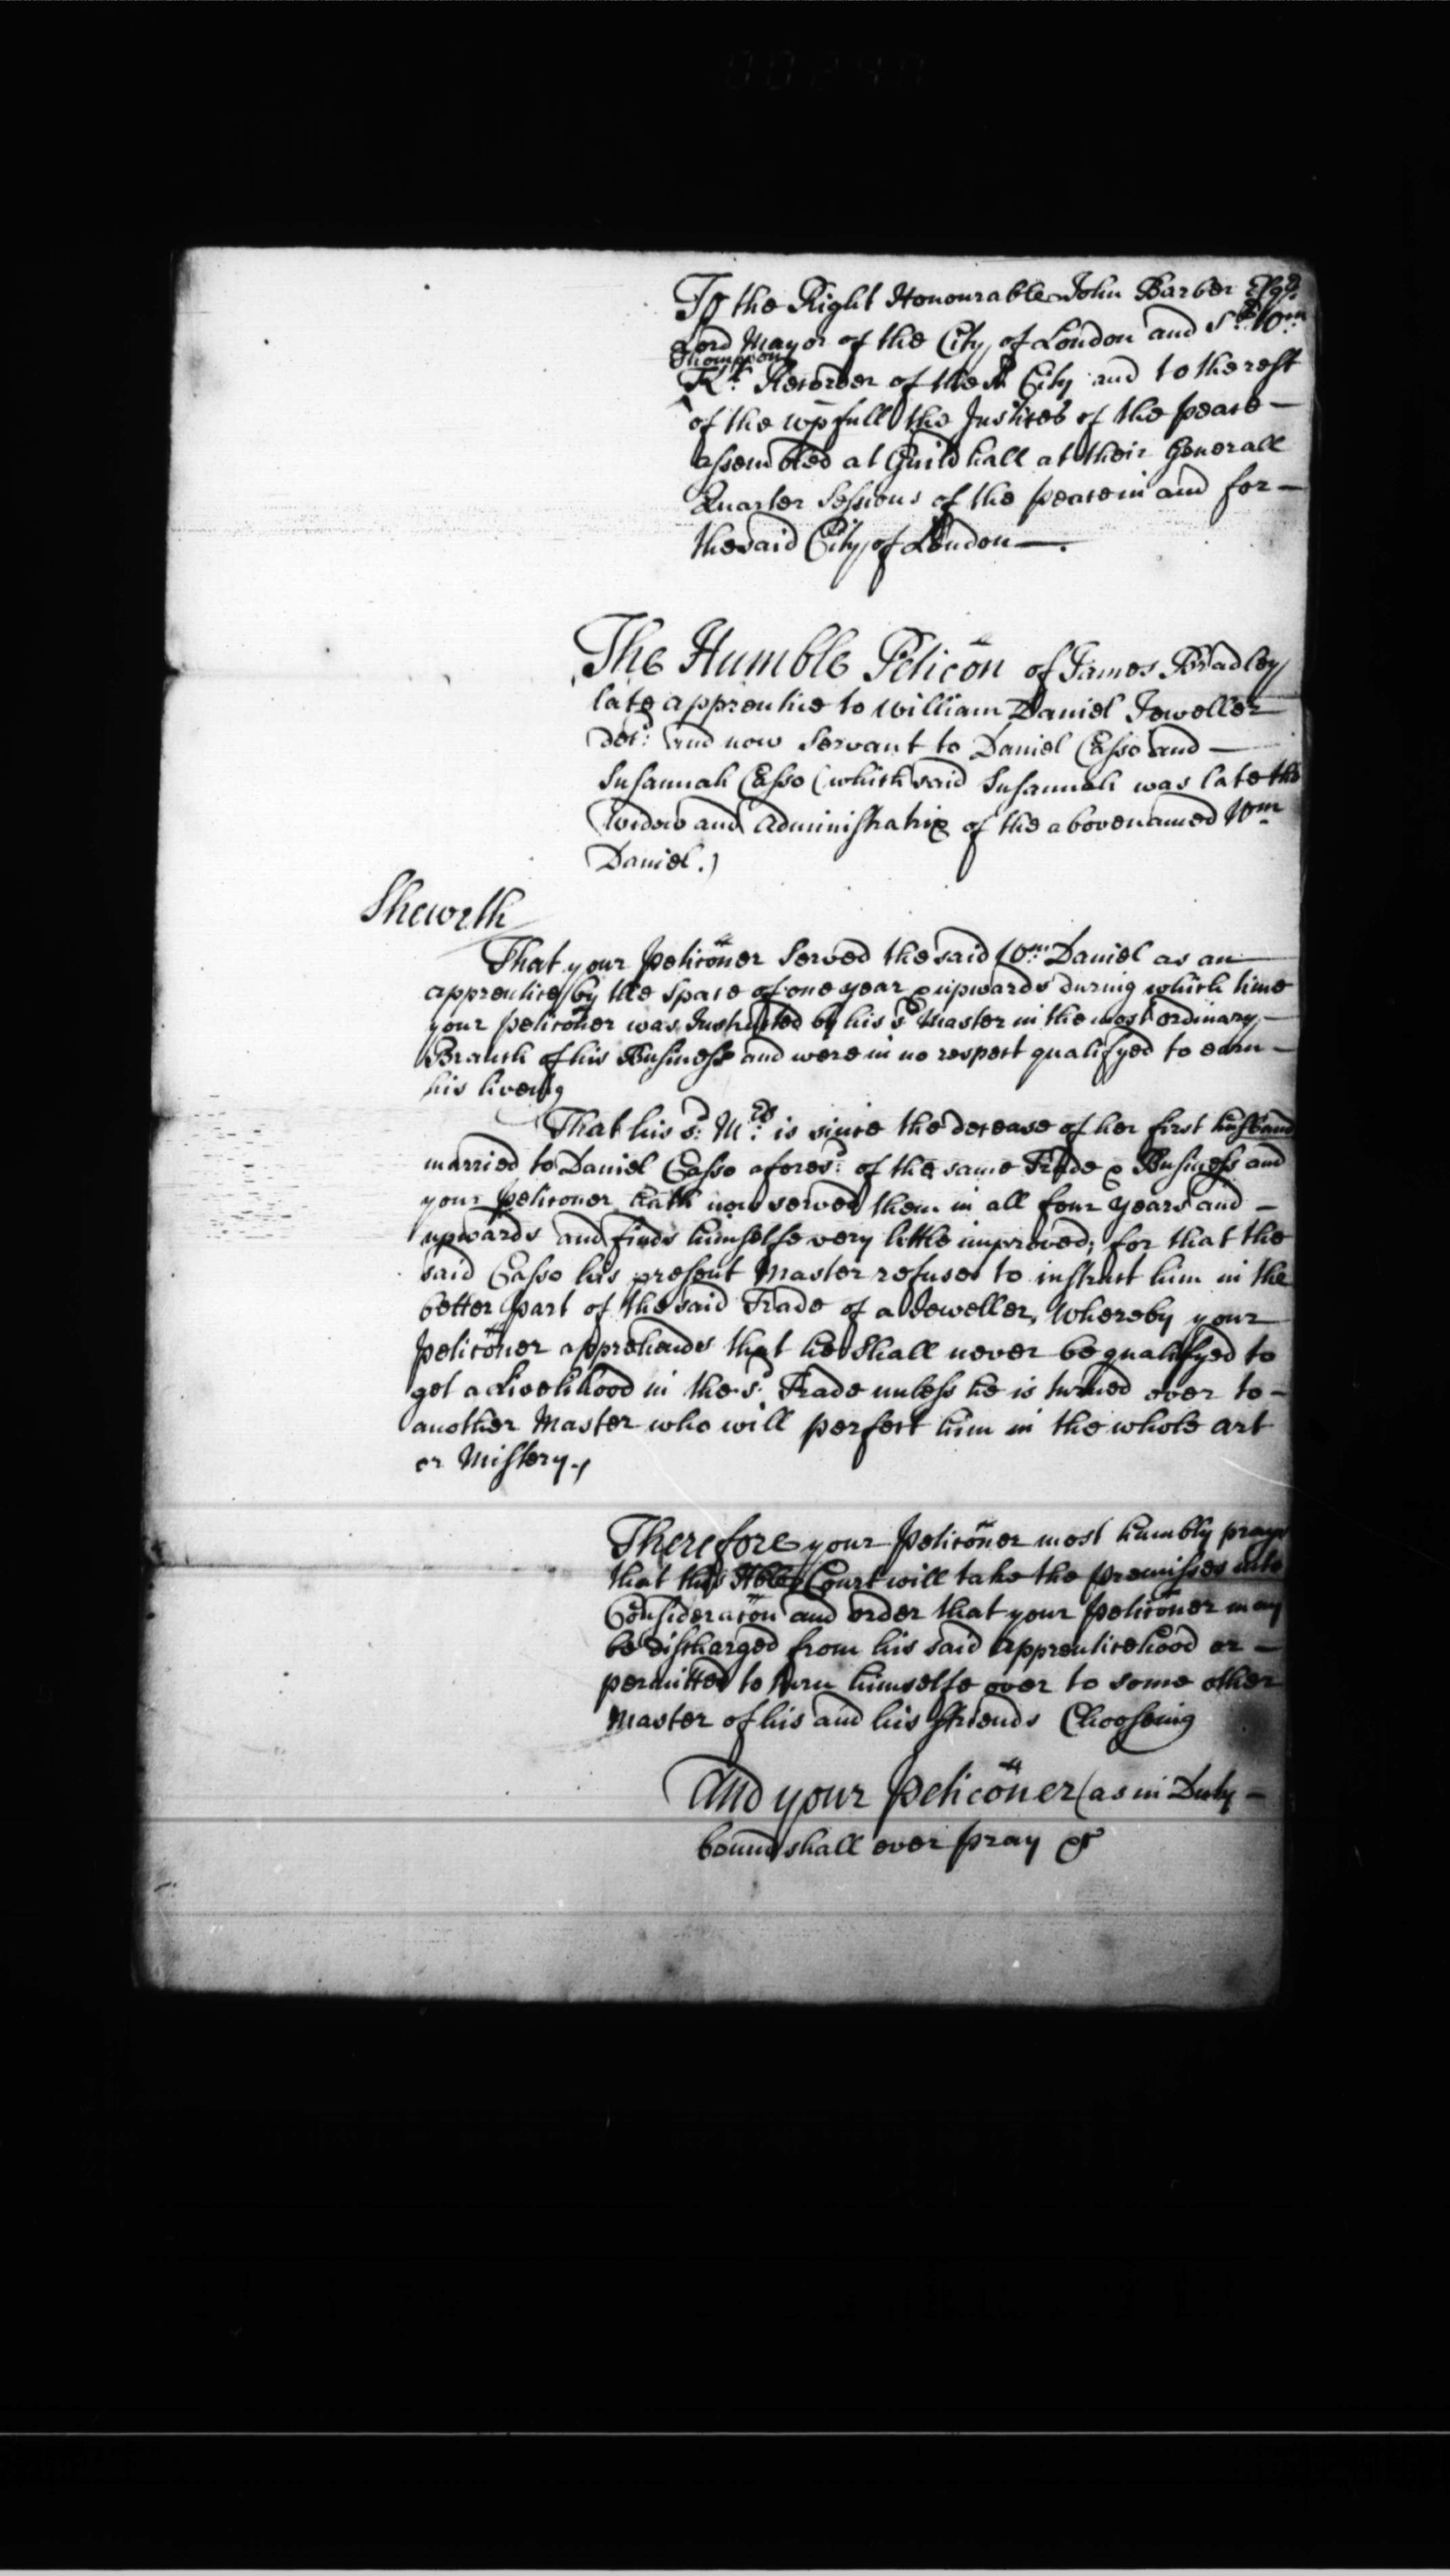 To the Right Honourable John Barber Esqr.
Lord Mayor of the City of London and Sr. Wm.
Thompson
Kt. Recorder of the sd City and to the rest
of the wpfull the Justices of the peace —
assembled at Guildhall at their Generall
Quarter Sessions of the peace in and for —
the said City of London —.
The Humble Peticōn of James Bradley
late apprentice to William Daniel Jeweller
decd: and now Servant to Daniel Casso and —
Susannah Casso (which said Susannah was late the
Widow and Administratrix of the abovenamed Wm
Daniel.)
Sheweth
That your peticōner Served the said Wm. Daniel as an
apprentice by the space of one year & upwards during which time
your peticōner was Instructed by his sd Master in the most ordinary —
Branch of his Business and were in no respect qualifyed to earn —
his liveing
That his sd: Mrs: is since the decease of her first husband
married to Daniel Casso aforesd: of the same Trade & Business and
your peticoner hath now served them in all four years and —
upwards and finds himselfe very little improved; for that the
said Casso his present Master refuses to instruct him in the
better part of the said Trade of a Jeweller, Whereby your
peticōner apprehends that he Shall never be qualifyed to
get a Livelihood in the sd. Trade unless he is turned over to —
another Master who will perfect him in the whole art
or Mistery.
Therefore your peticōner most humbly prays
that this Hble Court will take the premisses into
Consideracōn and order that your peticōner may
be discharged from his said Apprenticehood or —
permitted to turn himselfe over to some other
Master of his and his ffriends Chooseing
And your peticōner (as in Duty —
bound shall ever pray &c